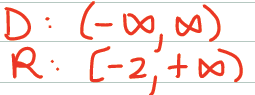 D: (-∞, ∞)
R: [-2, +∞)